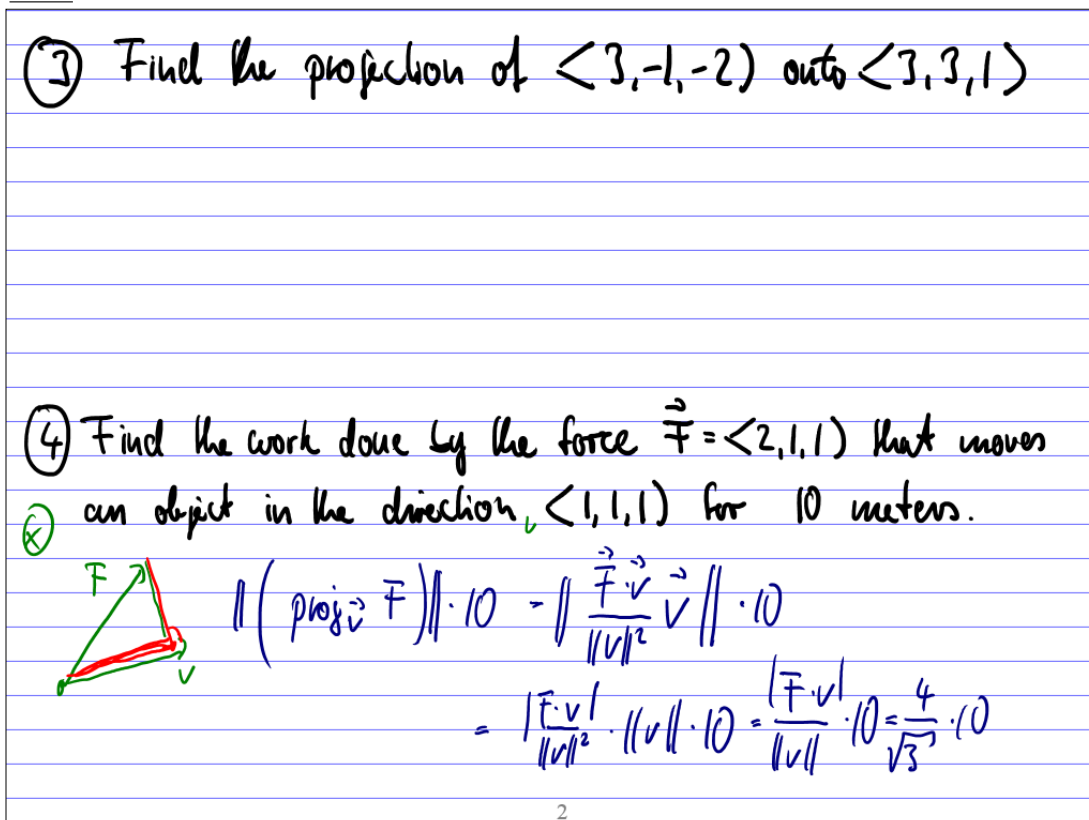 ③ Find the projection of <3,-1,-2) onto <3,3,1)
④ Find the work done by the force F⃗ = <2,1,1) that moves
an object in the direction v <1,1,1) for 10 meters.
x
F
v
‖( proj_v⃗ F )‖ · 10 = ‖ (F⃗·v⃗)/‖v‖² v⃗ ‖ · 10
= |F·v|/‖v‖² · ‖v‖ · 10 = |F·v|/‖v‖ · 10 = 4/√3 · 10
2